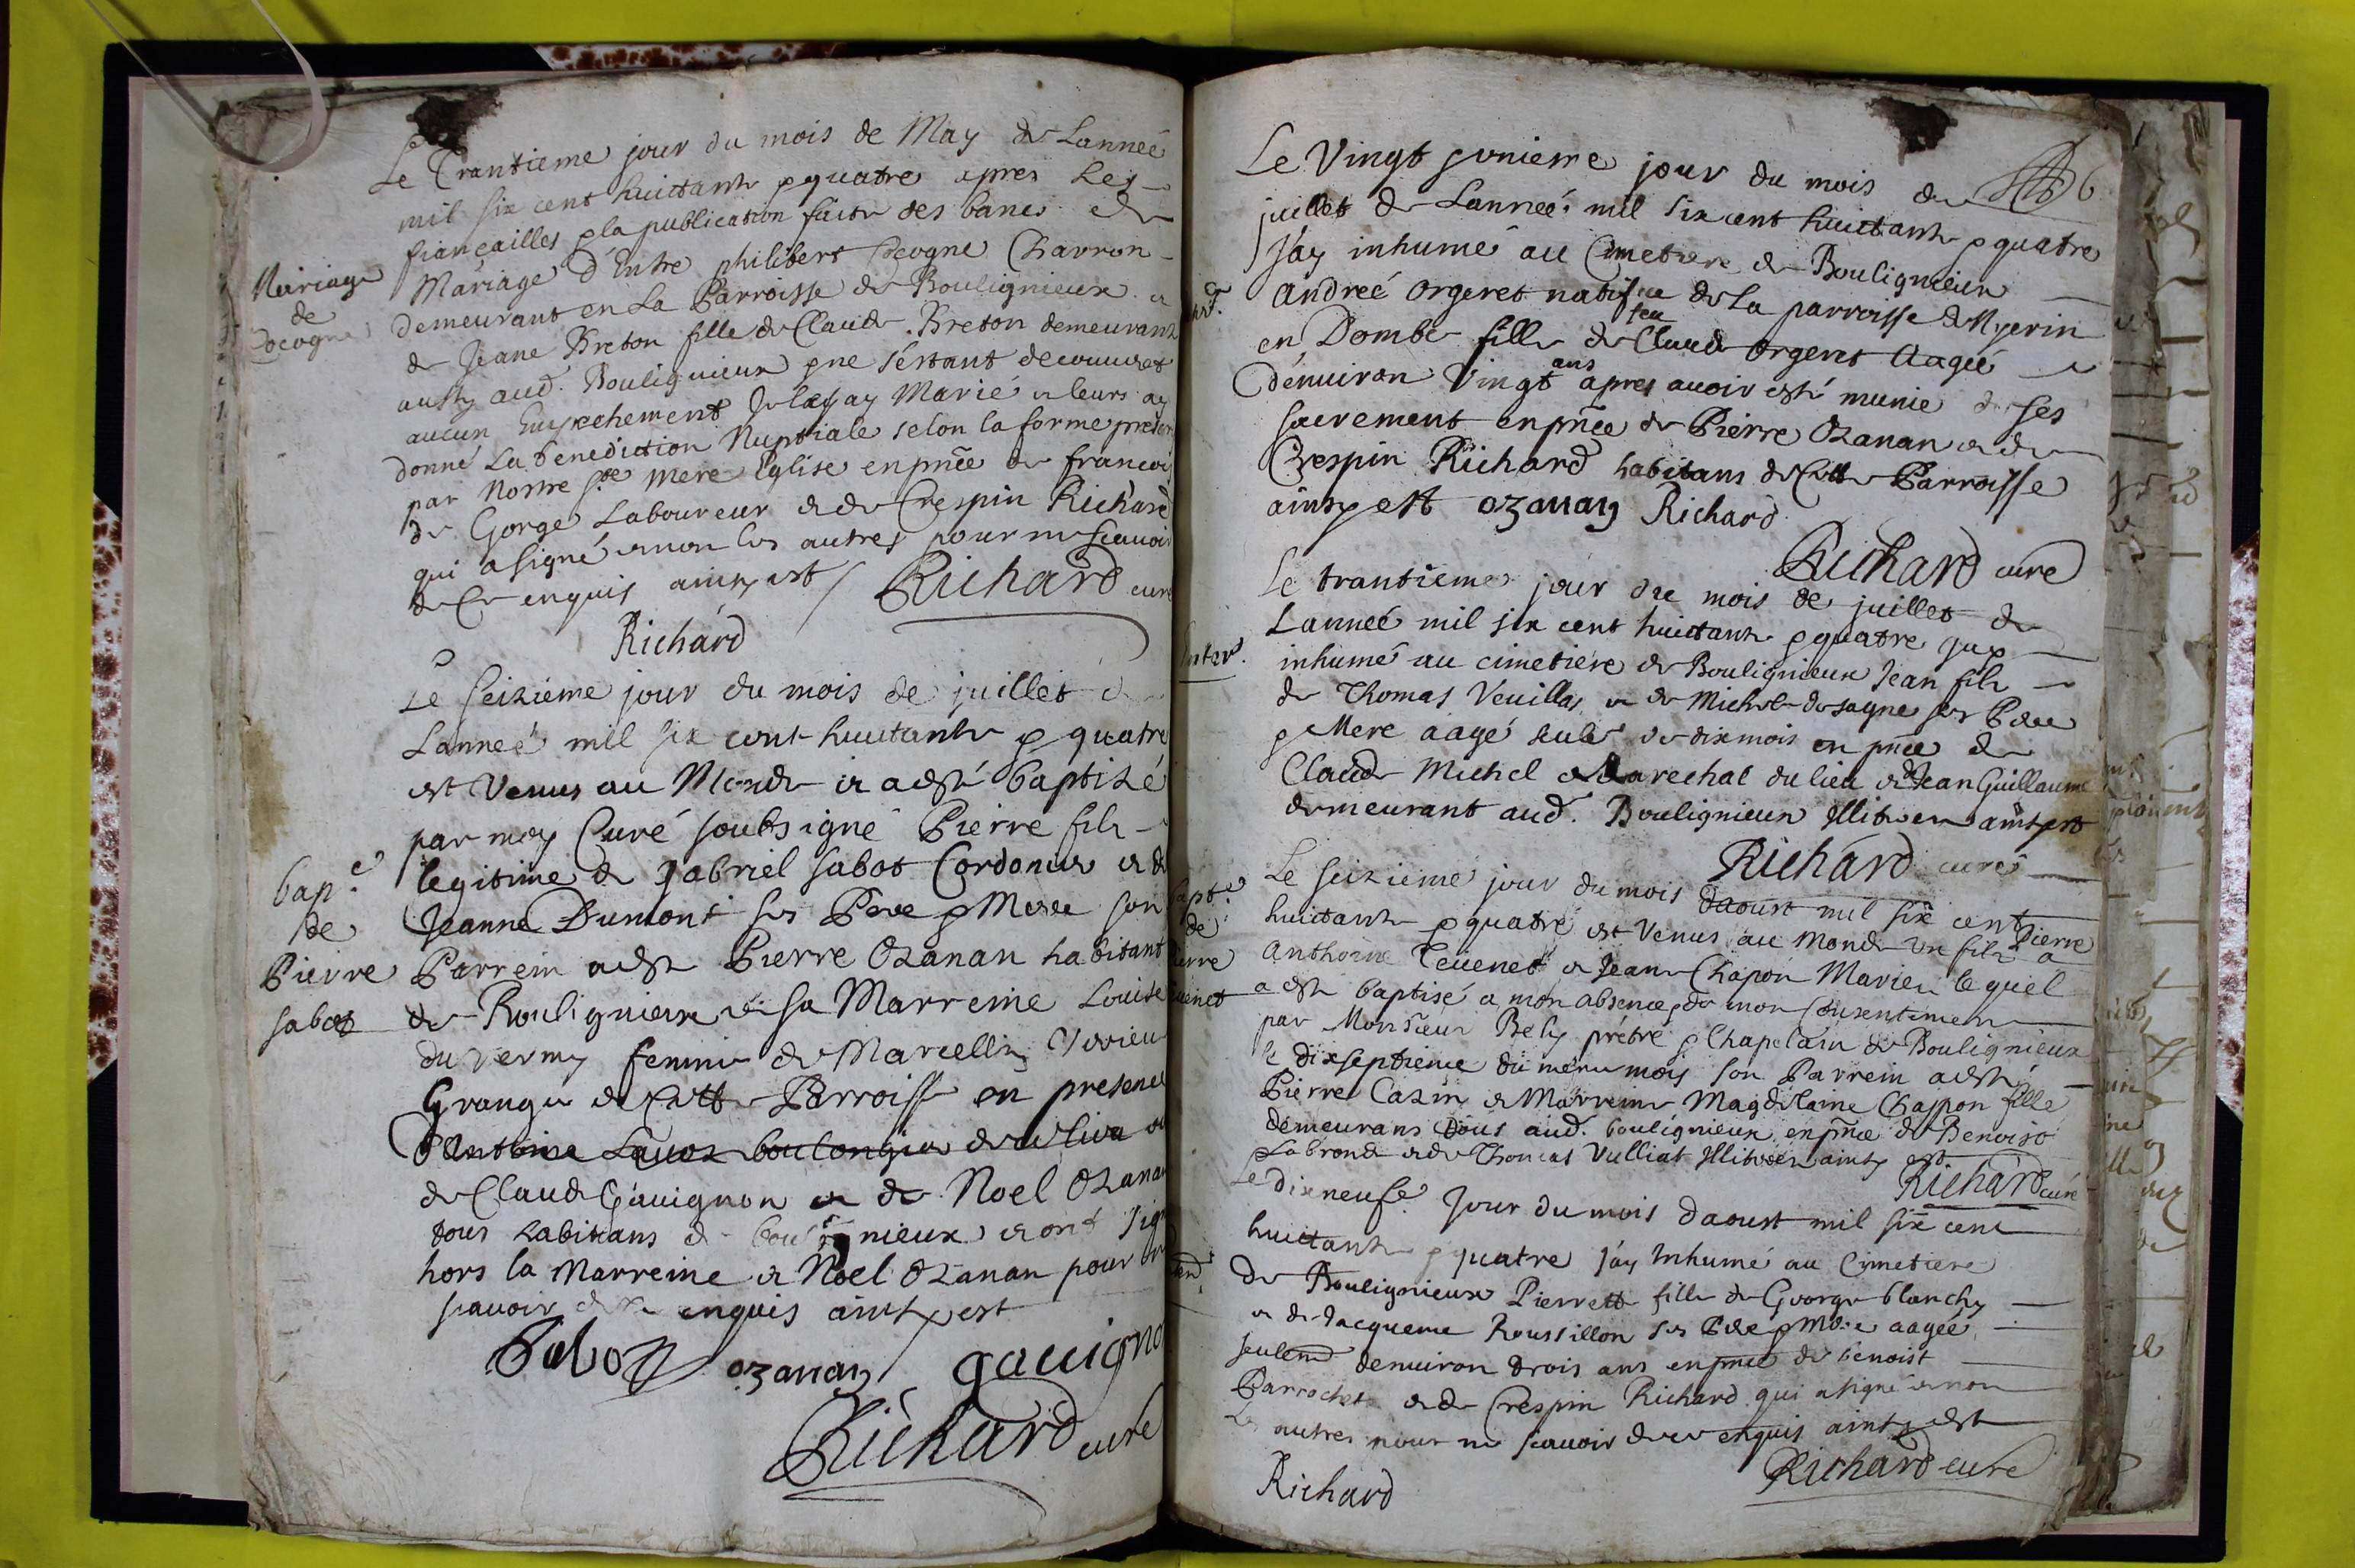 Le Trantieme jour du mois de May de Lanneé
mil six cent huictante & quatre apres Les
fiançailles & la publication faite des bancs de
Mariage d'Entre philibert Decogne Charron
Mariage
de
Decogne
demeurant en La Parroisse de Boulignieux &
de Jeane Breton fille de Claude Breton demeurant
aussy aud. Boulignieux & ne s'éstant decouvert
aucun Empechement Je les ay Marié & leurs ay
donné La benediction Nuptiale selon la forme
par Nostre ste mere Eglise en pnce de francois
de Gorge Laboureur & de Crespin Richard
qui a signé & non les autres pour ne scauoir
de ce enquis ainsy est / Richard curé
Richard
Le Seizieme jour du mois de juillet de
Lanneé mil six cent huictante & quatre
est Venus au Monde & a esté baptizé
par moy Curé soubsigné Pierre fils
bap.e
de
Pierre
sabot
legitime de gabriel sabot Cordonier & de
Jeanne Dumont ses Pere & Mere son
Parrein a esté Pierre Ozanan habitant
de Boulignieux & sa Marreine Louise
du vermy femme de Marcellin
Granger de Cette Parroisse en presence
d'Anthoine boulangier de ce lieu &
de Claude Gauignon & de Noel Ozanan
tous habitans de boulignieux & ont signé
hors la Marreine & Noel Ozanan pour ne
scauoir de ce enquis ainsy est
Sabot ozanan gauignon
Richard curé
6
Le Vingt unieme jour du mois de
juillet de Lanneé mil six cent huictante & quatre
J'ay inhumé au Cimetiere de Boulignieux
Andreé Orgeret natifue de La parroisse de
en Dombe fille de feu Claude Orgeret Aageé
d'enuiron Vingt ans apres auoir esté munie de ses
sacrement en pnce de Pierre Ozanan & de
Crespin Richard habitans de Cette Parroisse
ainsy est ozanan Richard
Richard curé
Le trantieme jour du mois de juillet de
Lanneé mil six cent huictante & quatre jay
inhumé au cimetiere de Boulignieux Jean fils
de Thomas Veuillas & de Michele dusagne ses Pere
& Mere aagé seulet de dix mois en pnce de
Claude Michel Marechal du lieu & Jean Guillaume
demeurant aud. Boulignieux Illiterez ainsy est
Richard curé
Le seizieme jour du mois daoust mil six cent
huictante & quatre est Venus au Monde Vn fils Pierre a
bapt.e
de
Anthoine Teuenet & Jeane Chapon Mariez lequel
a esté baptisé a mon absence & de mon consentement
par Monsieur Bely prêtre & Chapelain de Boulignieux
le dixseptieme du même mois son Parrein a esté
Pierre Cazin & Marreine Magdelaine Chappon fille
demeurans Tous aud. boulignieux en pnce de Benoist
Labronde & de Thomas Vulliat Illiterez ainsy est
Richard curé
Le dixneufe. Jour du mois daoust mil six cent
huictante & quatre j'ay Inhumé au Cimetiere
de Boulignieux Pierrette fille de George blanchy
& de Jacqueme Roussillon ses Pere & Mere aagée
seulemt denuiron trois ans en pnce de benoist
Parrochet & de Crespin Richard qui a signé & non
Les autres pour ne scauoir de ce enquis ainsy est
Richard
Richard curé